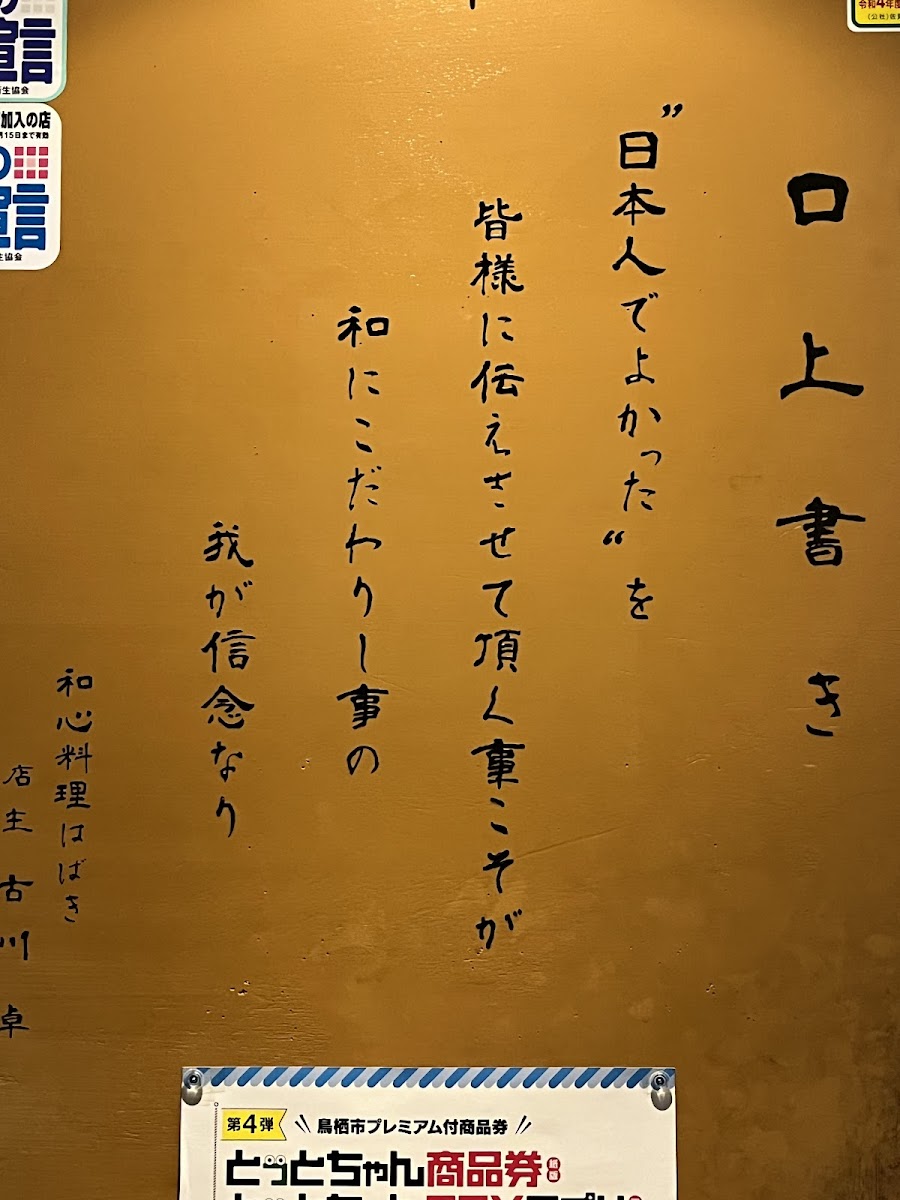 口上書き
”日本人でよかった“を
皆様に伝えさせて頂く事こそが
和にこだわりし事の
我が信念なり
和心料理はばき
店主 古川 卓
宣言
生協会
加入の店
月15日まで有効
の
宣言
生協会
令和4年度
第4弾
鳥栖市プレミアム付商品券
とっとちゃん商品券